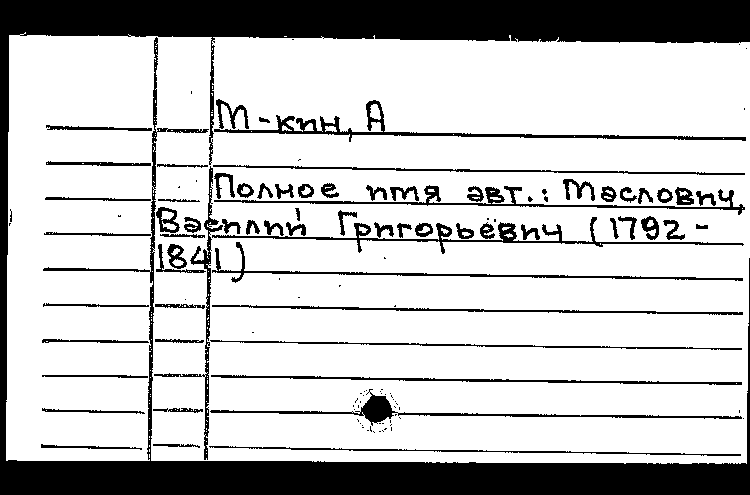 М-кин, А
Полное имя авт.: Маслович,
Василий Григорьевич (1792-
1841)